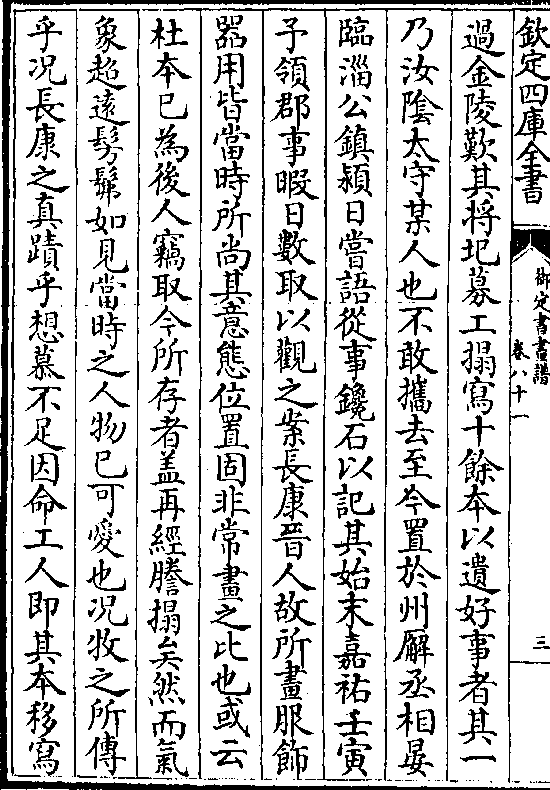 欽定四庫全書
御定書畫譜
卷八十一
三
過金陵歎其將圯募工搨寫十餘本以遺好事者其一
乃汝陰太守某人也不敢攜去至今置於州廨丞相晏
臨淄公鎮潁日嘗語從事鑱石以記其始末嘉祐壬寅
予領郡事暇日數取以觀之案長康晉人故所畫服飾
器用皆當時所尚其意態位置固非常畫之比也或云
杜本已為後人竊取今所存者盖再經謄搨矣然而氣
象超遠髣髴如見當時之人物已可愛也况牧之所傳
乎况長康之真蹟乎想慕不足因命工人即其本移寫